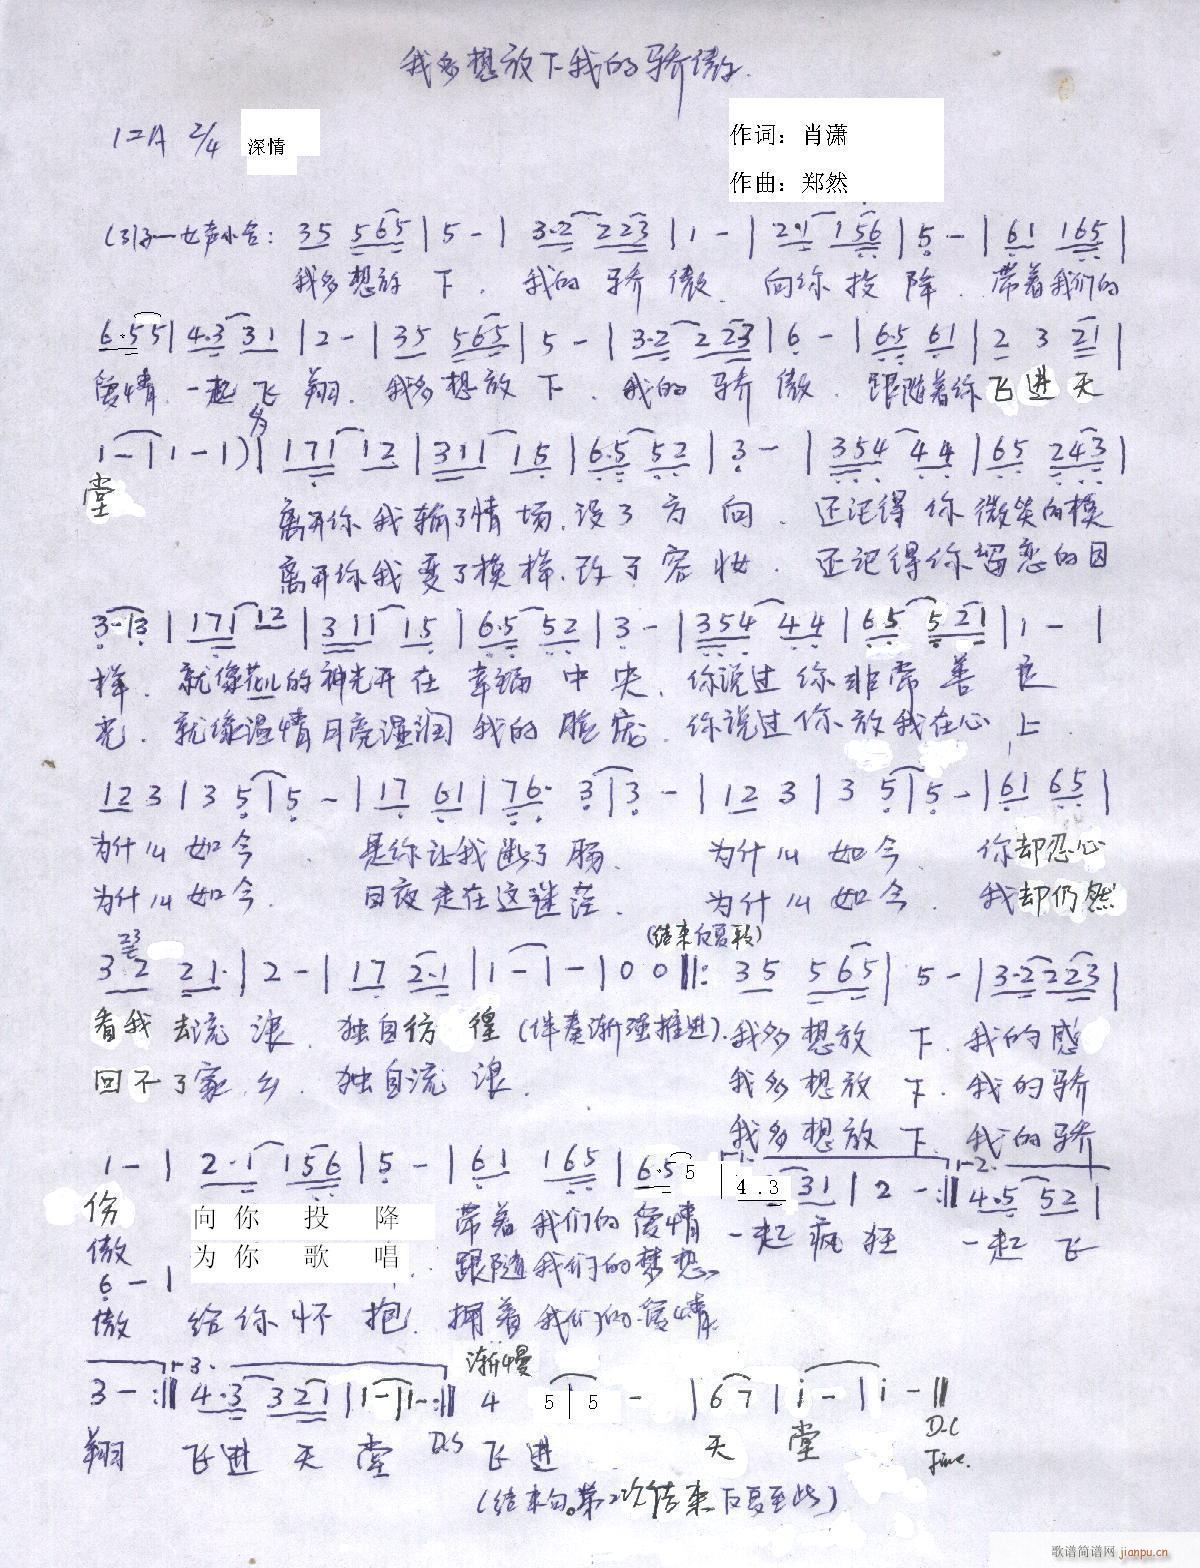 我多想放下我的骄傲
1=A 2/4 深情
作词：肖潇
作曲：郑然
(引子—女声小合: 35 565 | 5 - | 3·2 223 | 1 - | 2·1 156 | 5 - | 61 165 |
我多想放下. 我的骄傲. 向你投降. 带着我们的
6·55 | 4·3 31 | 2 - | 35 565 | 5 - | 3·2 223 | 6 - | 6·5 61 | 2 3 21 |
爱情. 一起飞翔. 我多想放下. 我的骄傲. 跟随着你飞进天
1 - | 1 - | ) | 171 12 | 311 15 | 6·5 52 | 3 - | 354 44 | 65 243 |
堂 离开你我输了情场. 没了方向. 还记得你微笑的模
离开你我变了模样. 改了容妆. 还记得你留恋的目
3 - 3 | 171 12 | 311 15 | 6·5 52 | 3 - | 354 44 | 65 521 | 1 - |
样. 就像花儿的神光开在幸福中央. 你说过你非常善良
光. 就像温情月亮湿润我的脸庞. 你说过你放我在心上
12 3 | 3 5 | 5 - | 17 61 | 76· 3 | 3 - | 12 3 | 3 5 | 5 - | 61 65 |
为什么如今. 是你让我断了肠. 为什么如今. 你却忍心
为什么如今. 日夜走在这迷茫. 为什么如今. 我却仍然
23 (结束反复和)
3 2 21· | 2 - | 17 2·1 | 1 - | - | 0 0 ‖: 35 565 | 5 - | 3·2 223 |
看我去流浪. 独自彷徨 (伴奏渐强推进). 我多想放下. 我的感
回不了家乡. 独自流浪. 我多想放下. 我的骄
我多想放下. 我的骄
1 - | 2·1 156 | 5 - | 61 165 | 6·5 5 | 4.3 31 | 2 - :‖ 2. 4·5 52 |
伤 向你投降 带着我们的爱情 一起疯狂 一起飞
傲 为你歌唱 跟随我们的梦想
6 - |
傲 给你怀抱. 拥着我们的爱情
3. 渐慢
3 - :‖ 4·3 321 | 1 - | 1 - :‖ 4 5 | 5 - | 67 | i - | i - ‖
翔 飞进天堂 D.S 飞进 天堂 D.C
Fine.
(结束句。第2次结束反复至此)
歌谱简谱网 jianpu.cn